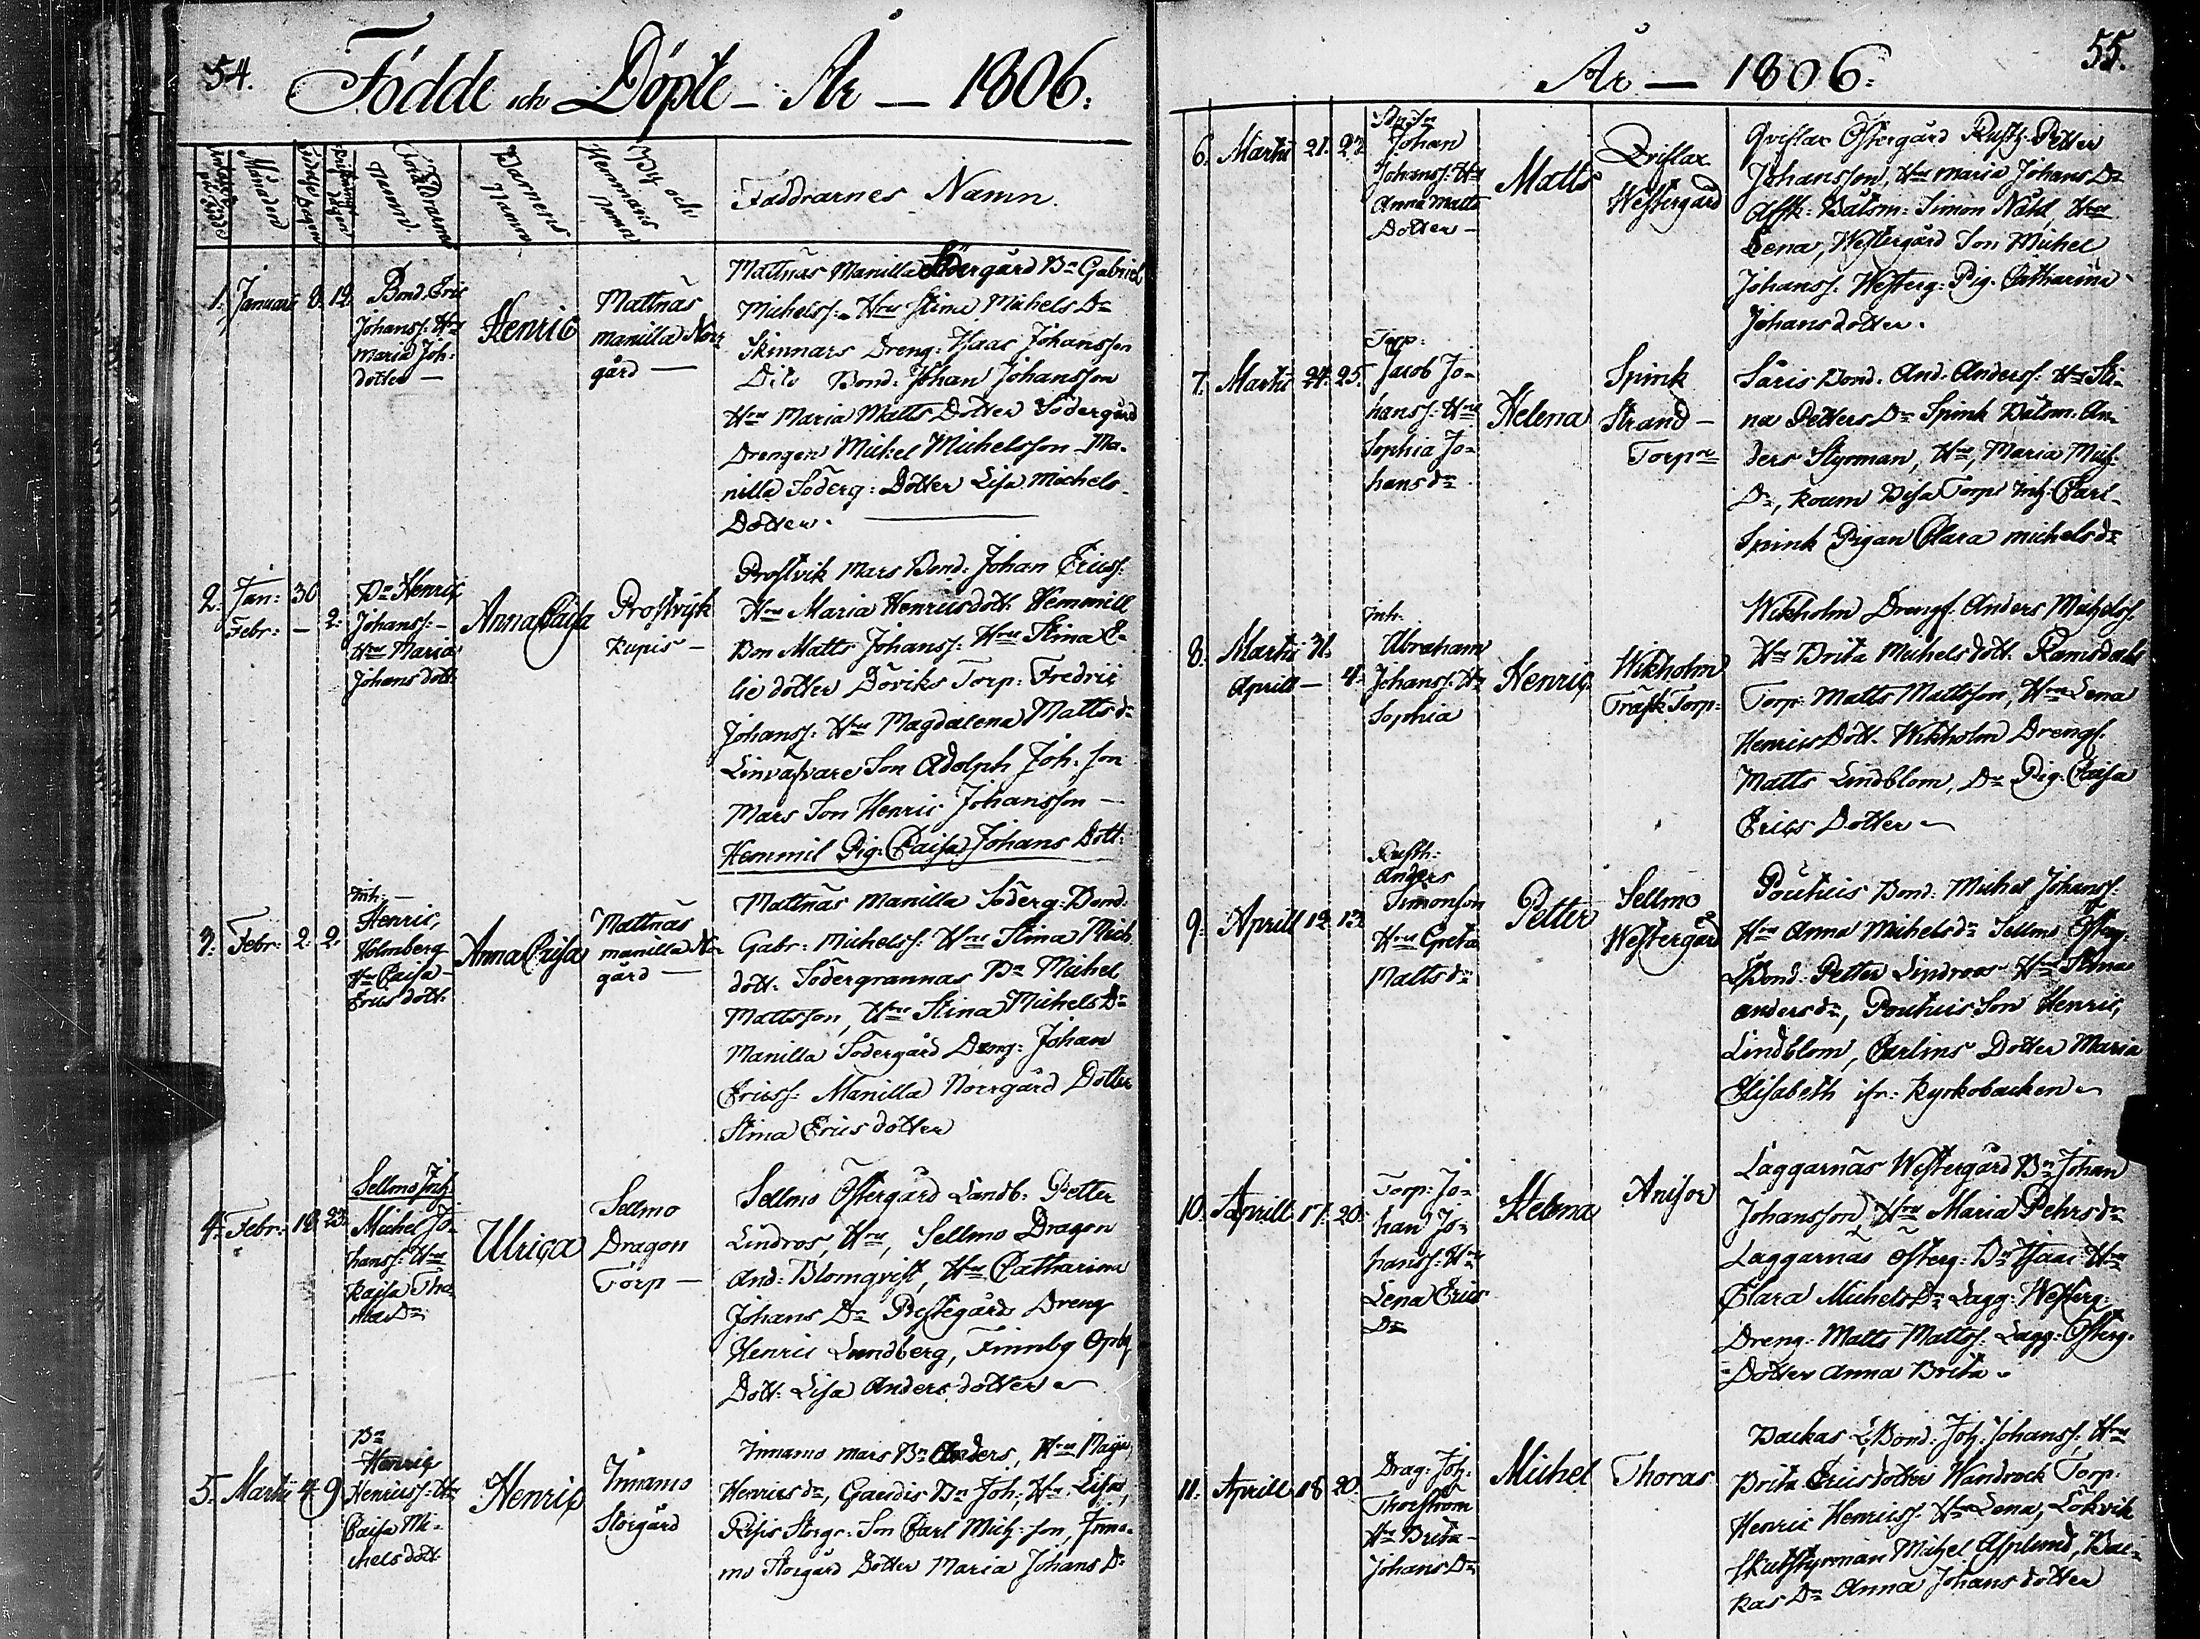 54.
Födde och Döpte – År — 1806.
Månaden
Föräldrarnes Namn
Barnens Namn
By och Hemmans Namn
Faddrarnes Namn.
1. Januari 8. 12.
Bond. Eric
Johanss: Hru
Maria Joh:
dotter —
Henric
Mattnäs
Manilla Norr
gård —
Mattnäs Manilla Södergård Bn Gabriel
Michelss: Hru Stina Michels Dr
Skinnars Dreng: Isaac Johansson
Dito Bond: Johan Johansson
Hru Maria Matts Dotter Södergård
Drengen Mickel Michelsson Ma-
nilla Söderg: Dotter Lisa Michels
Dotter.
2. Jan: 30
Febr: — 2.
Bn Henric
Johanss: –
Hru Maria
Johans dott:
Anna Caisa
Prostvik
Rupis —
Prostvik Mars Bond: Johan Ericss:
Hru Maria Henricsdott: Hemmill
Bon Matts Johanss: Hru Stina E-
lie dotter Döviks Torp: Fredric
Johanss: Hru Magdalena Matts dr
Son Adolph Joh: son
Mars Son Henric Johansson —
Hemmil Pig: Caisa Johans Dott:
3. Febr: 2. 2.
Inh: —
Henric
Holmberg
Hru Caisa –
Erics dott:
Anna Caisa
Mattnäs
Manilla Nor
gård —
Mattnäs Manilla Söderg: Bond:
Gabr: Michelss: Hru Stina Mich
dott: Södergrannas Bn Michel
Mattsson, Hru Stina Michels Dr
Manilla Södergård Dreng: Johan
Ericss: Manilla Norrgård Dotter
Stina Erics dotter
4. Febr: 18. 23.
Sellmo Inh:
Michel Jo-
hanss: Hru
Kajsa Tho-
mæ Dr
Ulrica
Sellmo
Dragon
Torp —
Sellmo Östergård Landb: Petter
Lindros, Hru, Sellmo Dragon
And: Blomqvist, Hru Catharina
Johans Dr Prestegårds Dreng
Henric Lundberg, Finnby
Dott: Lisa Anders dotter
5. Martii 4. 9.
Bn
Henric
Henricss: Hru
Caisa Mi-
chels dott:
Henric
Innamo
Storgård
Innamo Mars Bn Anders, Hru Maja
Henrics dr, Gardis Bn Joh: Hru Lisa,
Risis Storg: Son Carl Mich: son, Inna-
mo Storgård Dotter Maria Johans Dr
55.
År — 1806.
6. Martii 21. 23.
Johan
Johanss: Hru
Anna Matts
Dotter –
Matts
Qviflax
Westergård
Qviflax Östergård Rusth: Petter
Johansson, Hru Maria Johans Dr
Båtsm: Simon Nåhl, Hru
Lena, Westergård Son Michel
Johanss. Westerg: Pig: Catharina
Johansdotter.
7. Martii 24. 25.
Torp:
Jacob Jo-
hanss: Hru
Sophia Jo-
hans dr
Helena
Spink
Strand –
Torp
Säris Bond. And: Anderss: Hru Sti-
na Petters Dr Spink Båtsm: An-
ders Styrman, Hru, Maria Mich:
Dr, Torp Inh: Carl
Spink Pigan Clara Michels dr
8. Martii 31.
Aprill — 4.
Inh:
Abraham
Johanss: Hru
Sophia
Henric
Wikholm
Träsk Torp:
Wikholm Drengs: Anders Michelss:
Hru Brita Michels dott: Ramsdahls
Torp: Matts Mattsson, Hru Lena
Henrics Dott: Wikholm Drengs.
Matts Lindblom, Dr Pig: Caisa
Erics Dotter
9. Aprill 12. 13.
Rusth:
Anders
Simonson
Hru Greta
Matts dr
Petter
Sellmo
Westergård
Poutuis Bond: Michel Johanss:
Hru Anna Michels dr Sellmo Österg:
LBond: Petter Lindroos Hru Stina
Anders dr, Poutuis Son Henric,
Lindblom, Carlins Dotter Maria
Elisabeth ifr: Kyrkobacken
10. Aprill 17. 20.
Torp: Jo-
han Jo-
hanss: Hru
Lena Erics
Dr
Helena
Anisor
Laggarnäs Westergård Bn Johan
Johansson, Hru Maria Pehrs dr
Laggarnäs Österg: Bn Isaac Hru
Clara Michels Dr Lagg: Westerg:
Dreng: Matts Mattss: Lagg: Österg:
Dotter Anna Brita.
11. Aprill 18. 20.
Drag: Joh:
Thorström
Hru Brita –
Johans Dr
Michel
Thoras
Backas LBond: Joh: Johanss: Hru
Brita Ericsdotter Wandrock Torp:
Henric Henricss: Hru Lena, Lökvik
Michel Asplund, Bac-
kas Dr Anna Johans dotter